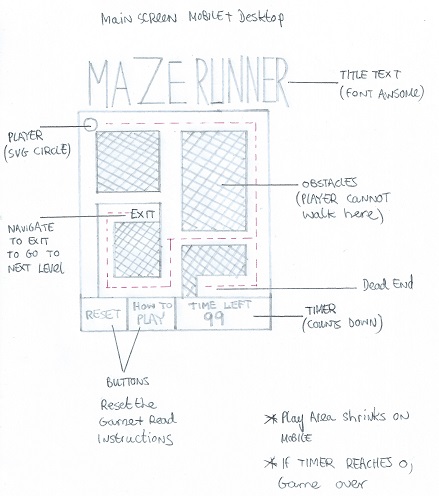 Main SCREEN MOBILE + Desktop
MAZE RUNNER
TITLE TEXT
(FONT AWSOME)
PLAYER
(SVG CIRCLE)
OBSTACLES
(PLAYER CANNOT
WALK here)
EXIT
NAVIGATE
TO EXIT
TO GO TO
NEXT LEVEL
Dead End
RESET
HOW TO
PLAY
TIME LEFT
99
TIMER
(COUNTS DOWN)
BUTTONS
Reset the
Game + Read
Instructions
* Play Area Shrinks ON
MOBILE
* IF TIMER REACHES 0,
Game over